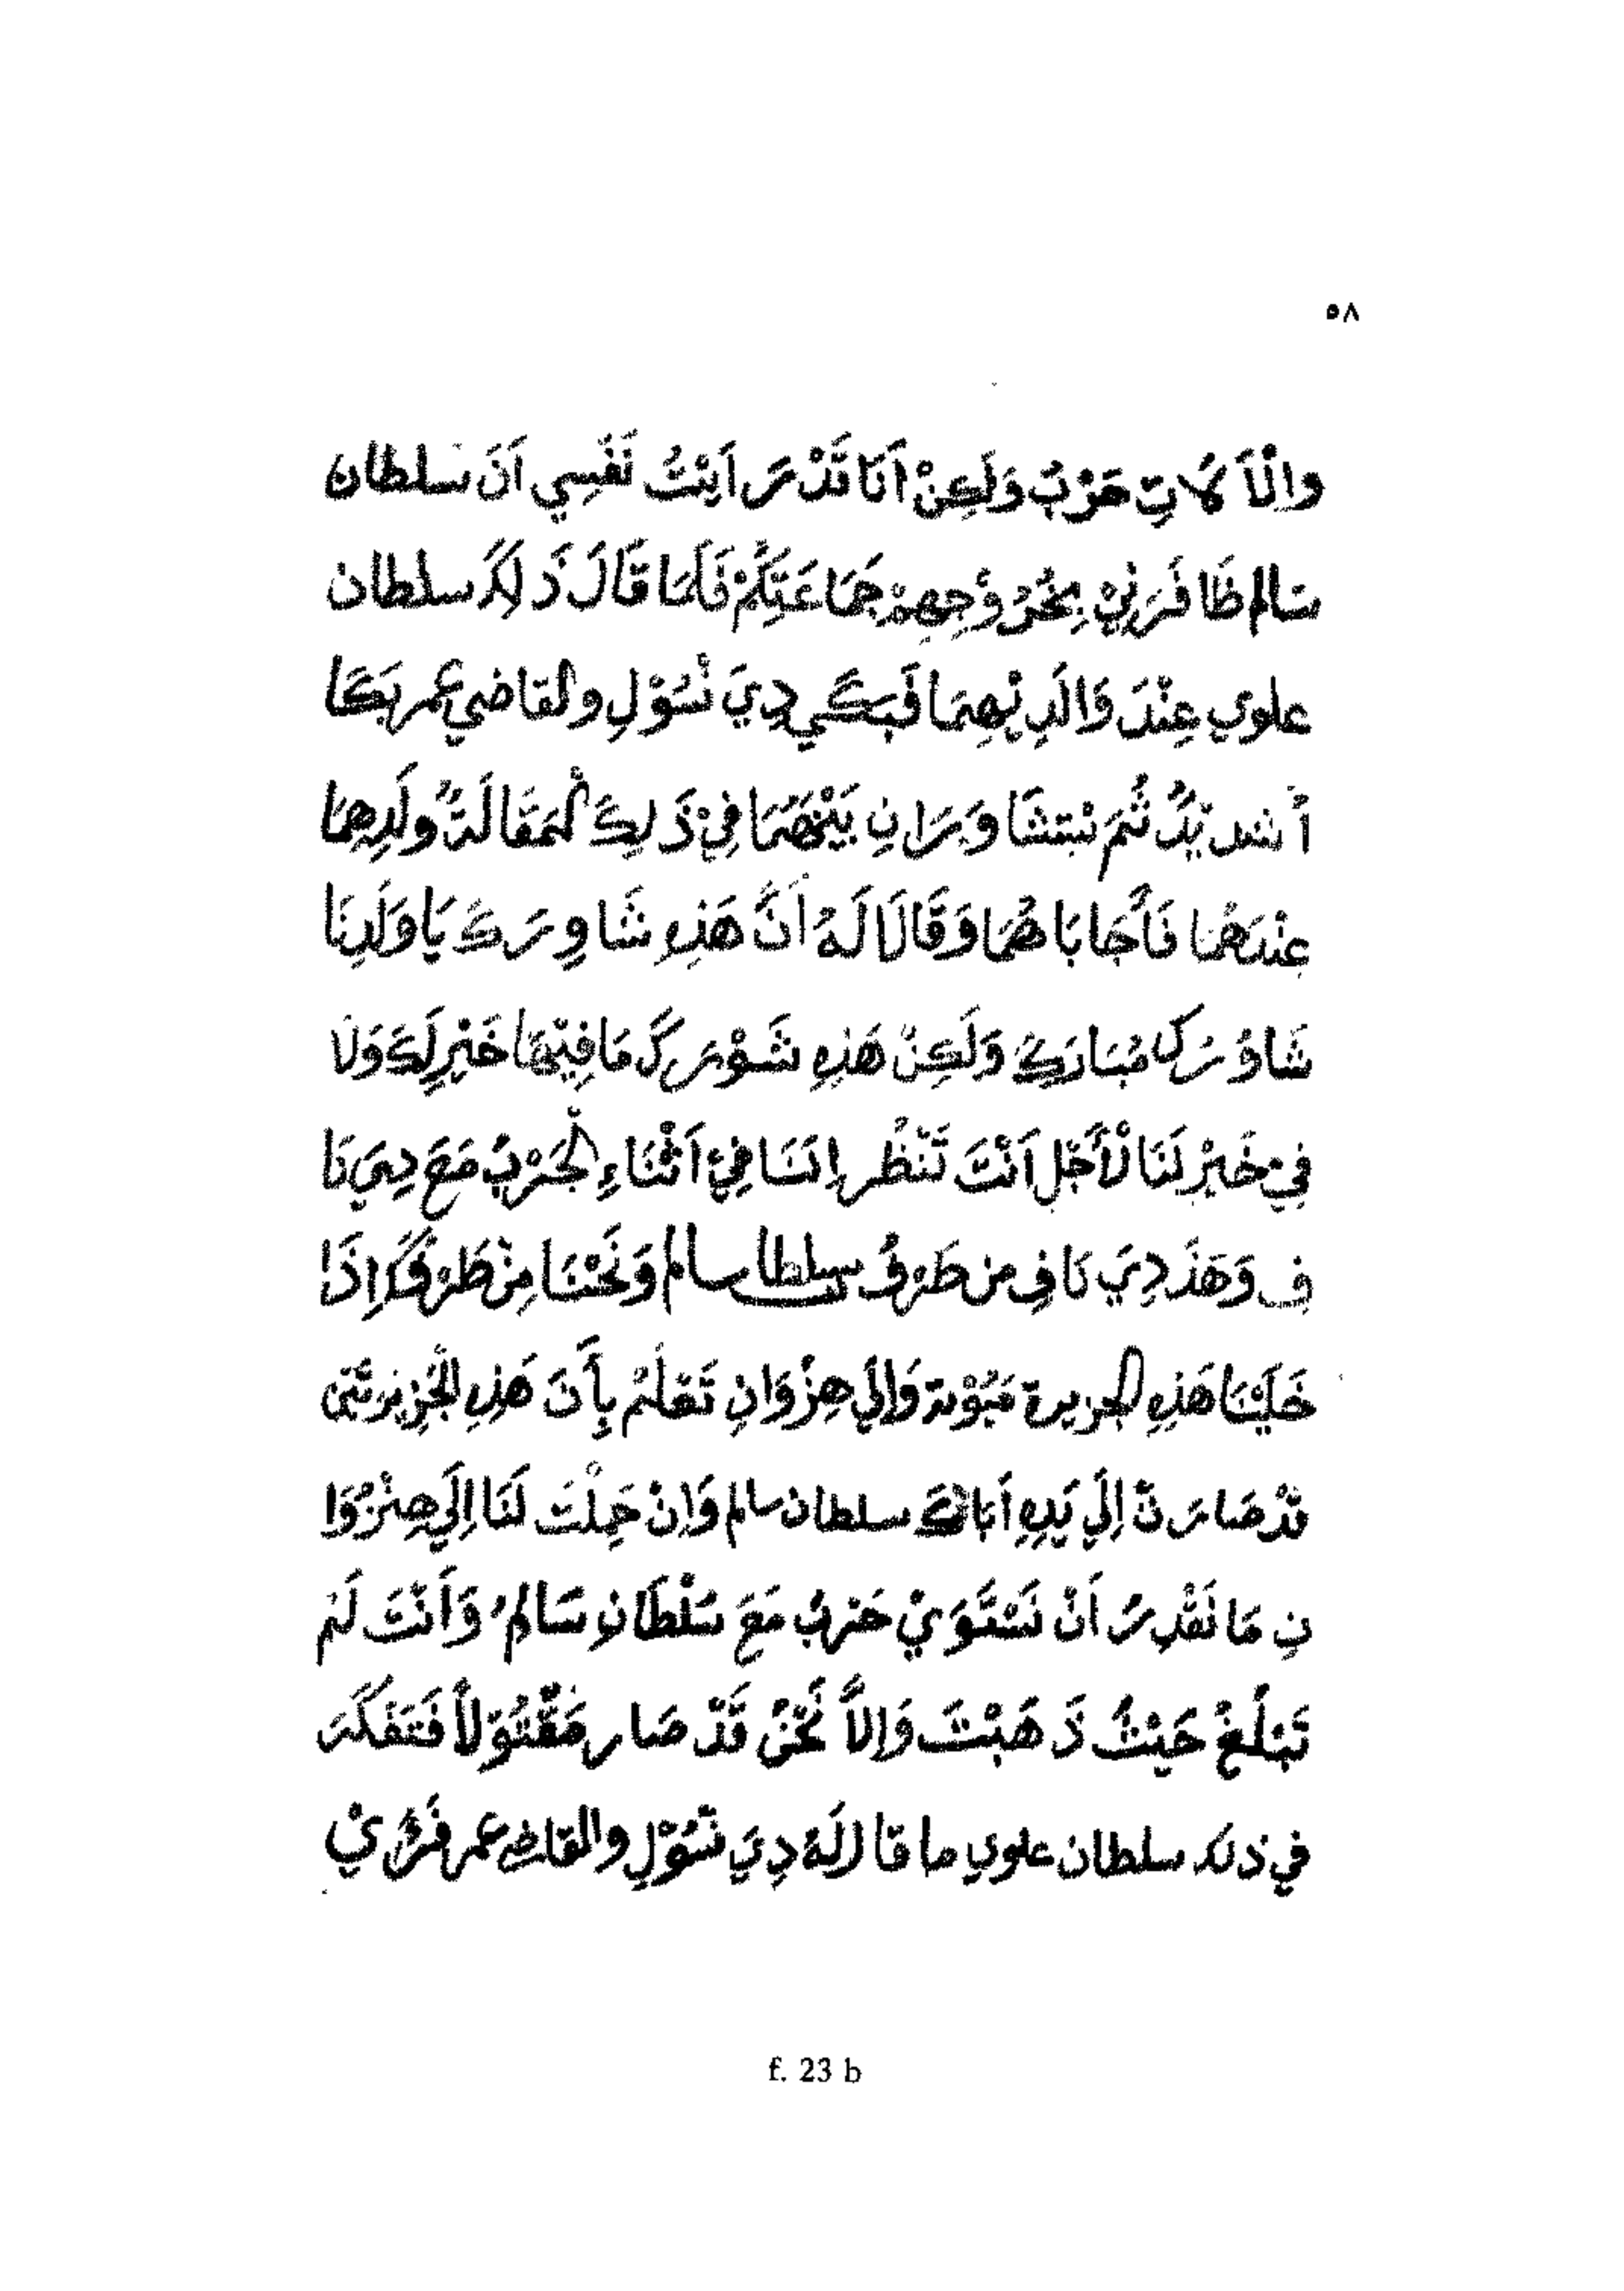 ٥٨
وإلّا لات حَرْبٌ وَلَكِنْ أَنَا قَدْ رَأَيْتُ نَفْسِي أَنَ سلطان
سالم ظَافَرَنِيْ بِخُرُوْجِهِمْ جَمَاعَتِكُمْ فَلَمَا قَالَ ذَلِكَ سلطان
علوي عِنْدَ وَالَدِيْهِمَا فَبَكَي دِيَ نْسُوْلِ ولقاضي عمر بَكَا
أشديْدٌ ثُمَ نبتشَاوَرَانِ بَيْنَهُمَا فِيْ ذَلِكَ لْمَقَالَةٌ ولَدِهِمَا
عِنْدَهُمَا فَأَجَابَا هُمَا وَقَالَا لَهُ اَنَّ هَذِهِ شَاوِرَكَ يَا وَلَدِنَا
شَاوُرَك مُبَارَكٌ وَلَكِنْ هَذِهِ شَوْرَكَ مَا فِيْهَا خَيْرٍ لَكَ وَلَا
فِيْ خَيْرْ لَنَا لْأَجْلِ أَنْتَ تَنْظُر إِنَنَا فِيْ أَثْنَاءِ لْحَرْبٌ مَعَ دِيَ نَا
فِ وَهَذَ دِيَ نَافِ من طَرَفُ سلطا سالم وَنَحْنَا مِنْ طَرَفَكَ إِذَا
خَلَيْنَا هَذِهِ الجزيرة مَيُوْتة وَإِلَي هِزْوَانِ تَعْلَمُ بِأَنَ هَذِهِ لْجَزِيْرتَيْ
قَدْ صَارَتْ إِلَي يَدِهِ أَبَانَكَ سلطان سالم وَاِنْ حَمِلْتَ لَنَا إِلَي هِنْزُوَا
نِ مَا نَقْدِرُ أَنْ نَسْتَوَيْ حَرْبُ مَعَ سُلْطَانِ سَالِمُ وَأَنْتَ لَمْ
تَبْلَغْ حَيْثُ ذَهَبْتَ وَإِلاَّ نَحْنُ قَدْ صَار مَقْتُوْلاً فَتَفَكَرَ
في ذلك سلطان علوي ما قا لَهُ دِيَ نْسُوْلِ والقاضي عمر فَرَيْ
f. 23 b